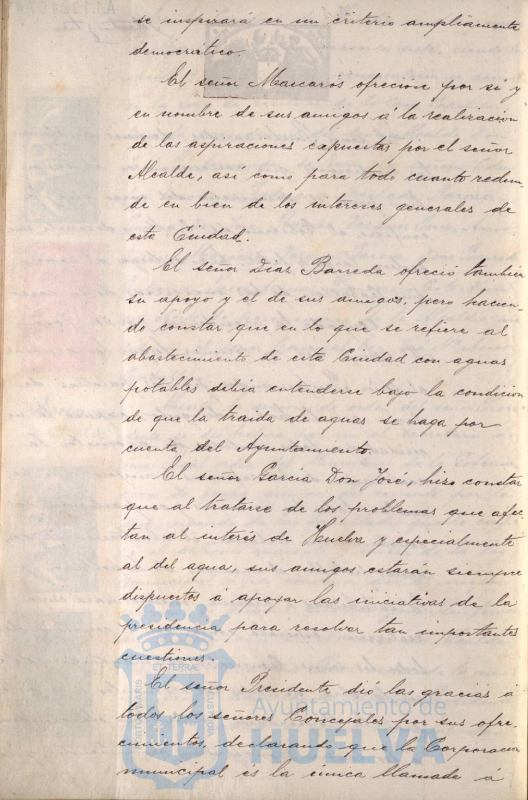 se inspirará en un criterio ampliamente
democratico.
El señor Mascarós ofreciose por si y
en nombre de sus amigos á la realizacion
de las aspiraciones expuestas por el señor
Alcalde, así como para todo cuanto redun-
de en bien de los intereses generales de
esta Ciudad.
El señor Diaz Barreda ofreció tambien
su apoyo y el de sus amigos, pero hacien-
do constar que en lo que se refiere al
abastecimiento de esta Ciudad con aguas
potables debia entenderse bajo la condicion
de que la traida de aguas se haga por
cuenta del Ayuntamiento.
El señor García Don José, hizo constar
que al tratarse de los problemas que afec-
tan al interés de Huelva y especialmente
al del agua, sus amigos estarán siempre
dispuestos á apoyar las iniciativas de la
presidencia para resolver tan importantes
cuestiones.
El señor Presidente dió las gracias á
todos los señores Concejales por sus ofre-
cimientos, declarando que la Corporacion
municipal es la única llamada á
Ayuntamiento de
HUELVA